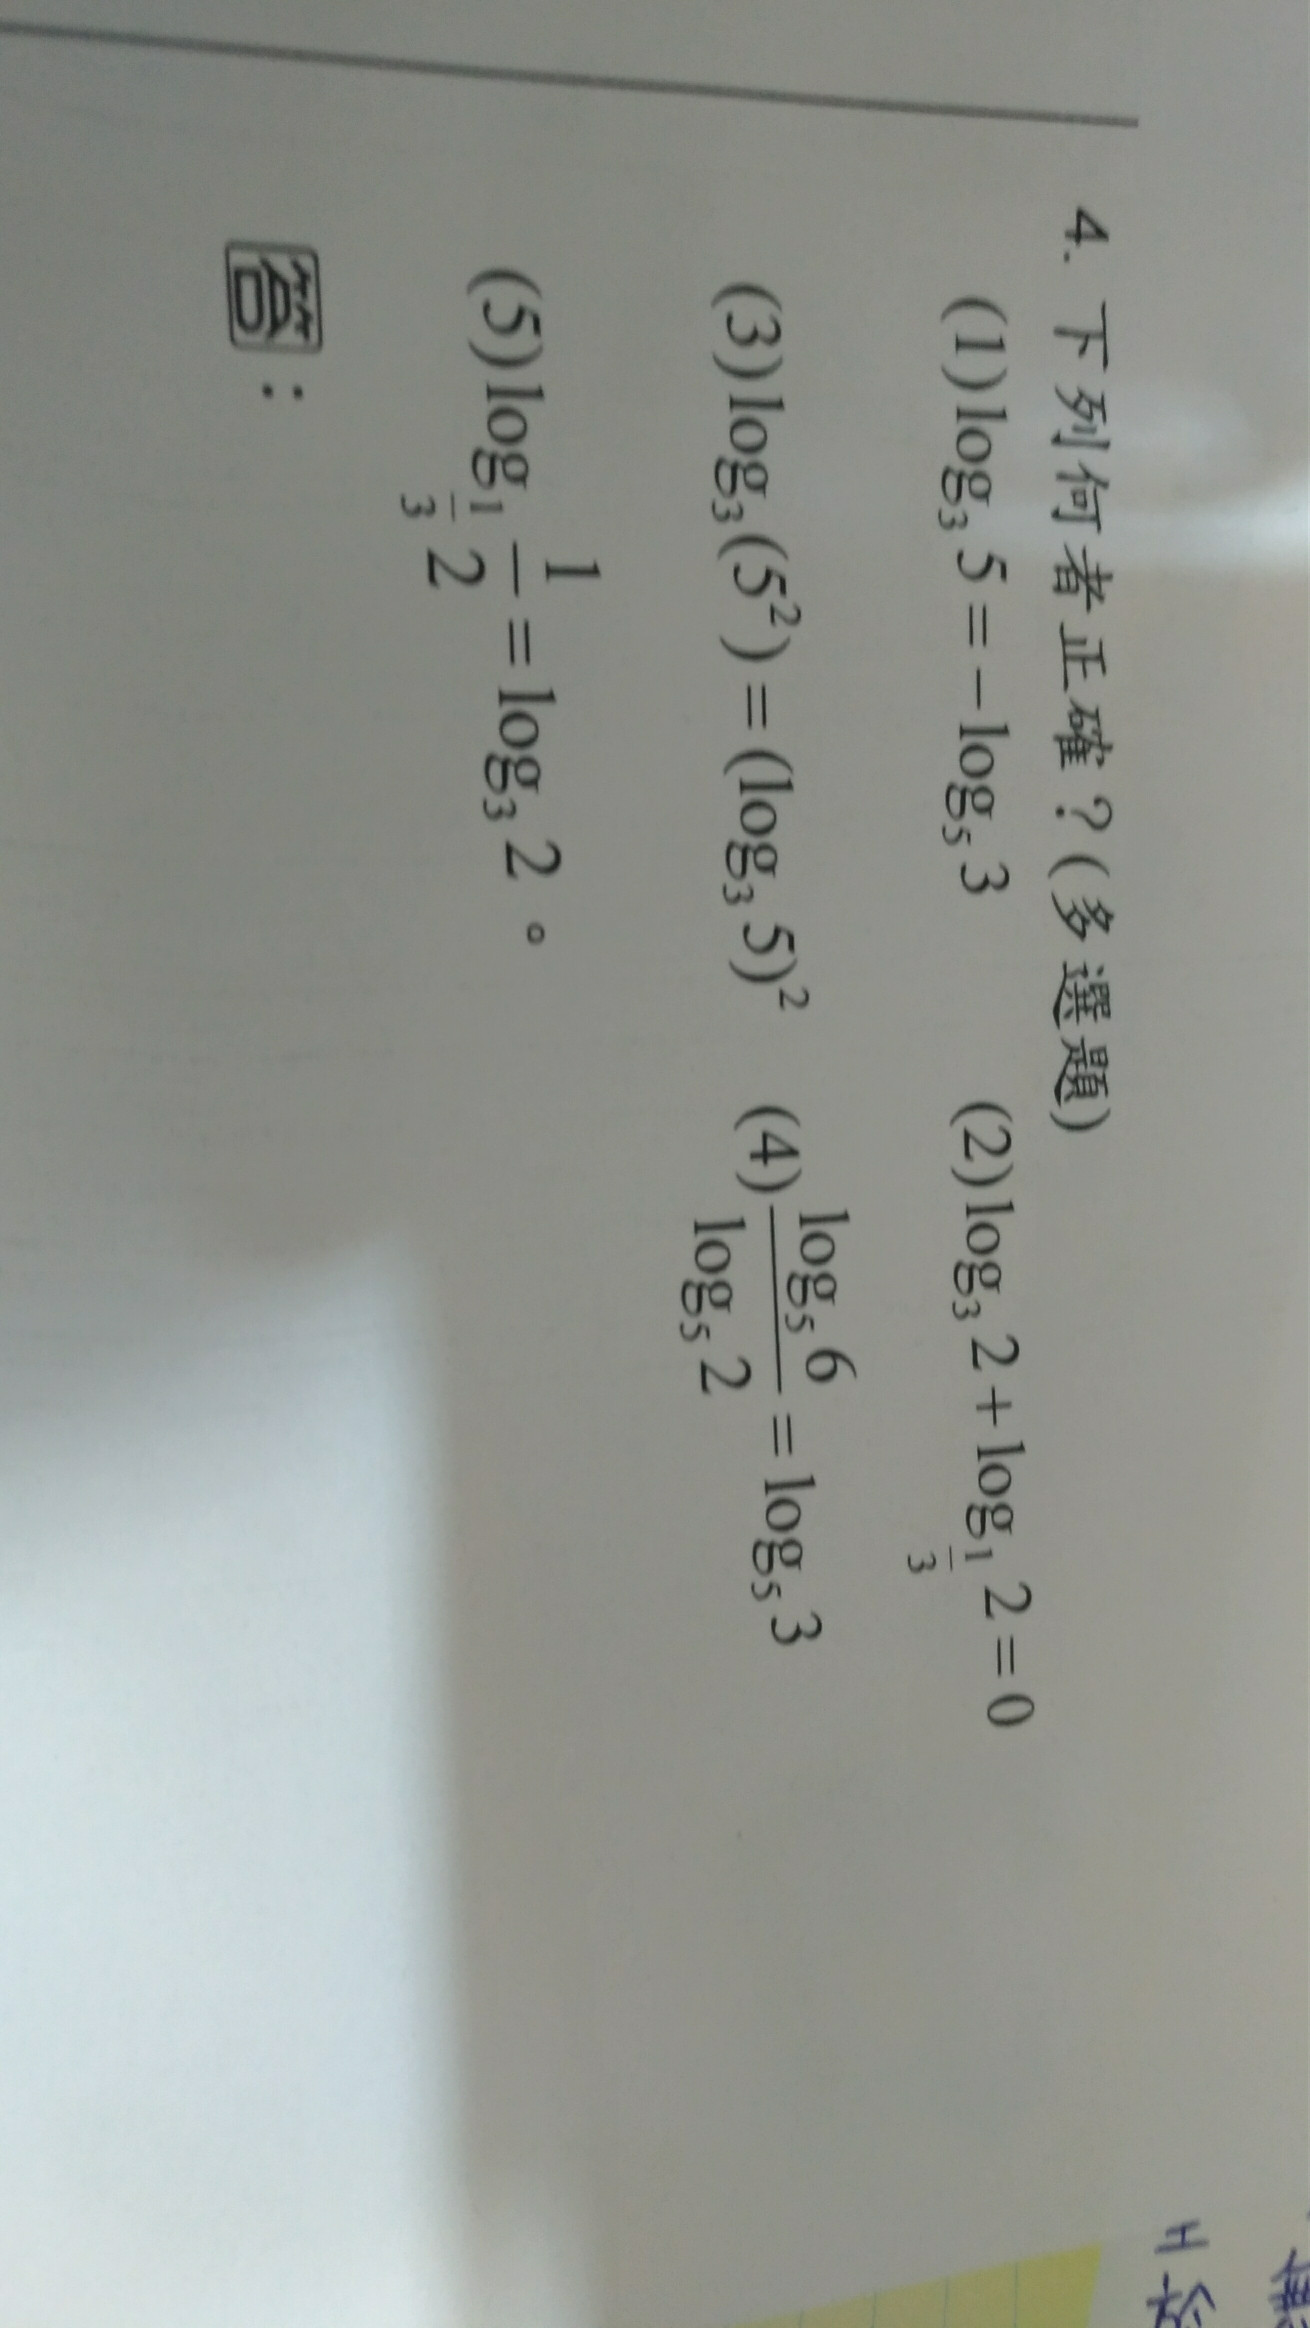 4. 下列何者正確？(多選題)
(1) log₃ 5 = −log₅ 3 (2) log₃ 2 + log_{1/3} 2 = 0
(3) log₃ (5²) = (log₃ 5)² (4) \frac{log₅ 6}{log₅ 2} = log₅ 3
(5) log_{1/3} \frac{1}{2} = log₃ 2。
答：